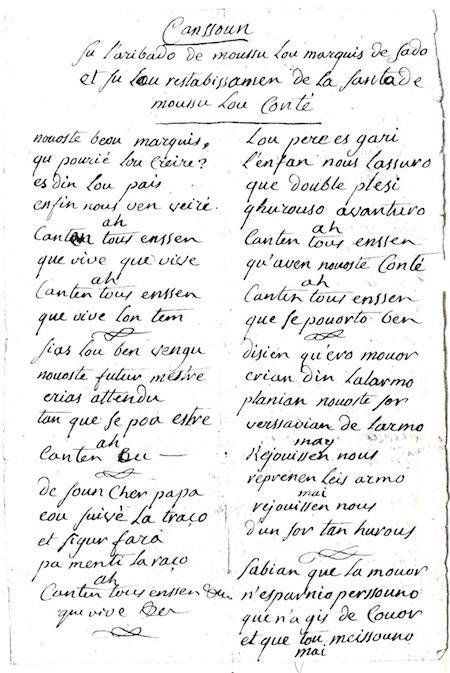 Canssoun
su l'aribado de moussu lou marquis de sado
et su lou restabissamen de la santa de
moussu lou Conté
nouoste beou marquis,
qu pourié lou creire?
es din lou païs
enfin nous ven veire.
ah
Canten tous enssen
que vive que vive
ah
Canten tous enssen
que vive lon tem
sias lou ben vengu
nouoste futur mestre
erias attendu
tan que se poa estre
ah
Canten
de soun cher papa
eou suivé la traço
et sigur fara
pa menti la raço
ah
Canten tous enssen
que vive
Lou pere es gari
l'enfan nous lassuro
que double plesi
qhurouso avanturo
ah
Canten tous enssen
qu'aven nouoste Conté
ah
Canten tous enssen
que se pouorto ben
disien qu'ero mouor
erian din lalarmo
planian nouoste sor
verssavian de larmo
may
Rejouissen nous
reprenen leis armo
mai
rejouissen nous
d'un sor tan hurous
sabian que la mouor
n'esparnio perssouno
que n'a gis de Couor
et que tou meissouno
mai